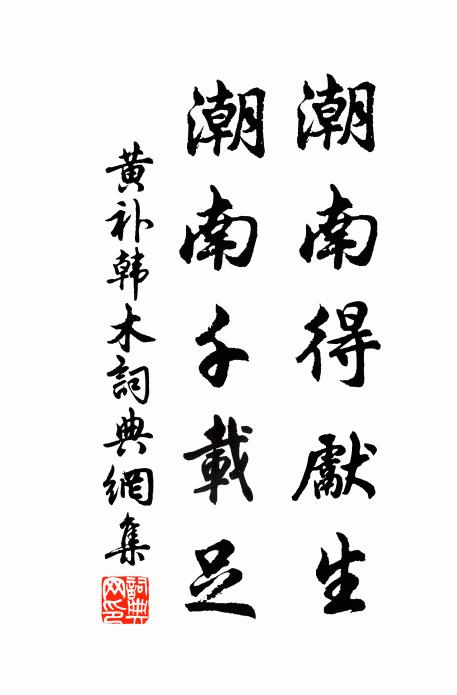 潮南得獻生
潮南千載足
黄补韩木詞典網集
詞典網印